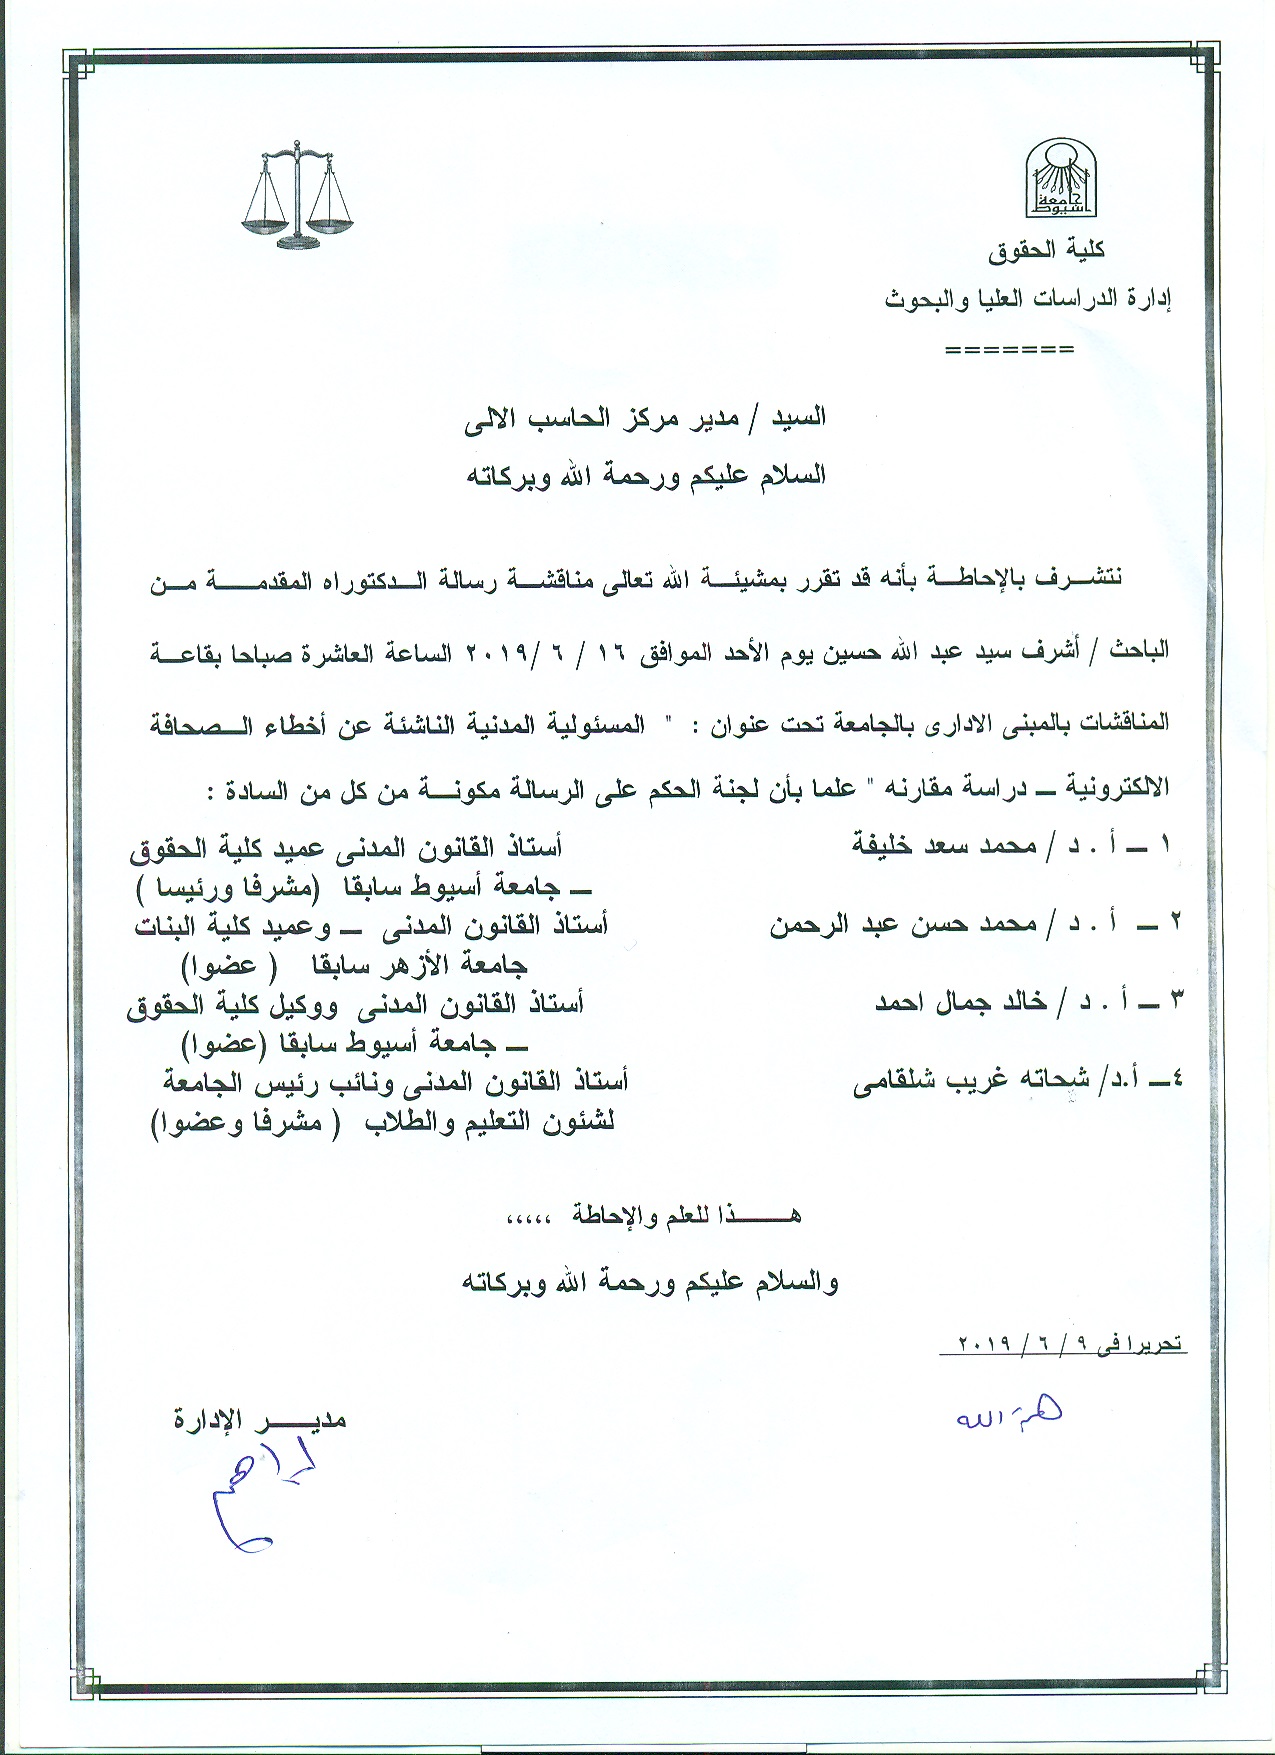 جامعة
اسيوط
كلية الحقوق
إدارة الدراسات العليا والبحوث
=======
السيد / مدير مركز الحاسب الالى
السلام عليكم ورحمة الله وبركاته
نتشرف بالإحاطة بأنه قد تقرر بمشيئة الله تعالى مناقشة رسالة الدكتوراه المقدمة من
الباحث / أشرف سيد عبد الله حسين يوم الأحد الموافق ١٦ / ٦ /٢٠١٩ الساعة العاشرة صباحا بقاعة
المناقشات بالمبنى الادارى بالجامعة تحت عنوان : " المسئولية المدنية الناشئة عن أخطاء الصحافة
الالكترونية – دراسة مقارنه " علما بأن لجنة الحكم على الرسالة مكونة من كل من السادة :
١ – أ . د / محمد سعد خليفة أستاذ القانون المدنى عميد كلية الحقوق
– جامعة أسيوط سابقا (مشرفا ورئيسا )
٢ – أ . د / محمد حسن عبد الرحمن أستاذ القانون المدنى – وعميد كلية البنات
جامعة الأزهر سابقا ( عضوا)
٣ – أ . د / خالد جمال احمد أستاذ القانون المدنى ووكيل كلية الحقوق
– جامعة أسيوط سابقا (عضوا)
٤– أ.د/ شحاته غريب شلقامى أستاذ القانون المدنى ونائب رئيس الجامعة
لشئون التعليم والطلاب ( مشرفا وعضوا)
هـــذا للعلم والإحاطة ،،،،،
والسلام عليكم ورحمة الله وبركاته
تحريرا فى ٩ / ٦ / ٢٠١٩
مديـــر الإدارة